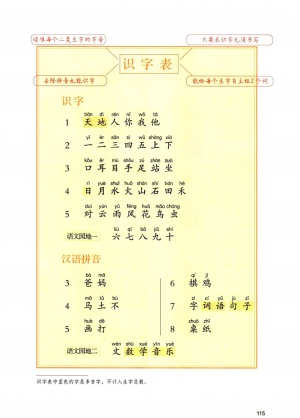 读准每个二类生字的字音
只要求识字无须书写
识字表
去除拼音也能识字
能给每个生字自主组2个词
识字
tiān dì rén nǐ wǒ tā
1 天地人你我他
yī èr sān sì wǔ shàng xià
2 一二三四五上下
kǒu ěr mù shǒu zú zhàn zuò
3 口耳目手足站坐
rì yuè shuǐ huǒ shān shí tián hé
4 日月水火山石田禾
duì yún yǔ fēng huā niǎo chóng
5 对云雨风花鸟虫
liù qī bā jiǔ shí
语文园地一 六七八九十
汉语拼音
bà mā
3 爸妈
qí jī
6 棋鸡
mǎ tǔ bù
4 马土不
zì cí yǔ jù zǐ
7 字词语句子
huà dǎ
5 画打
zhuō zhǐ
8 桌纸
wén shù xué yīn yuè
语文园地二 文数学音乐
识字表中蓝色的字是多音字，不计入生字总数。
115